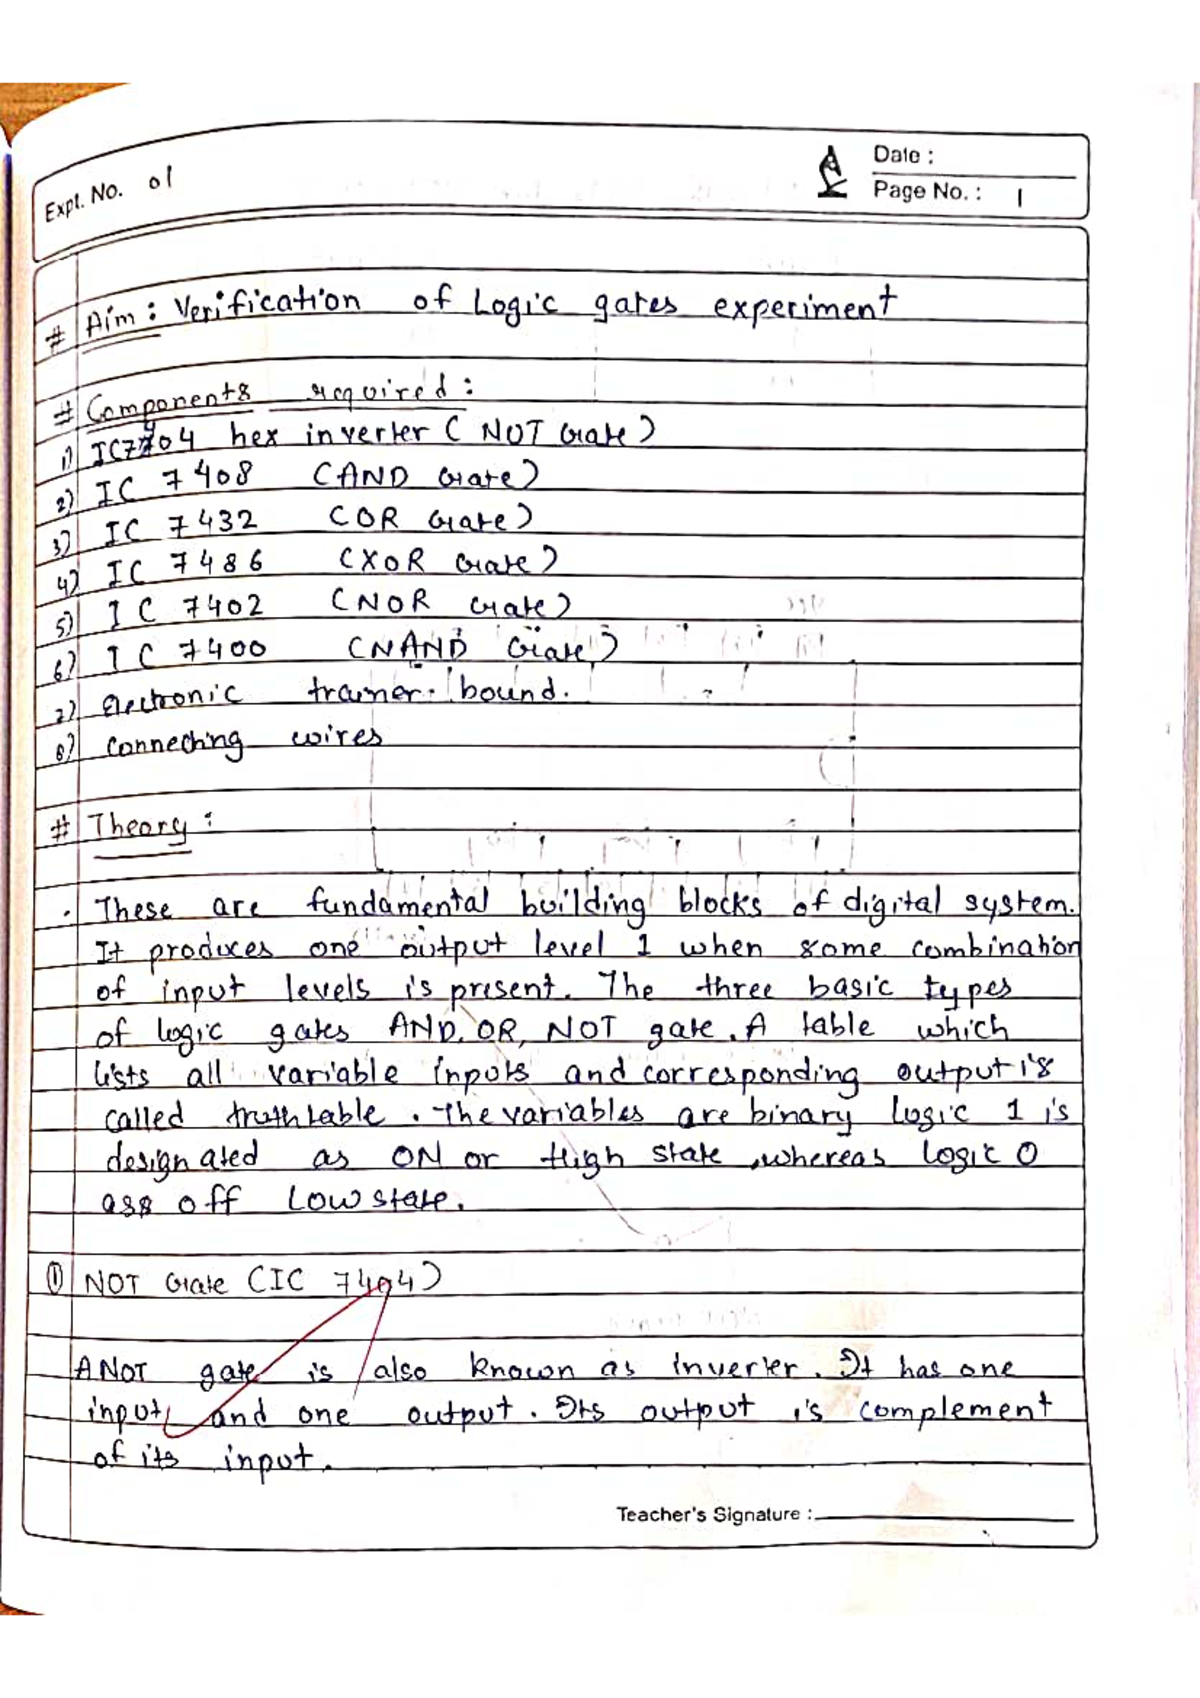 Expt. No. 01
Date :
Page No. : 1
# Aim : Verification of Logic gates experiment
# Components required :
1) IC 7404 hex inverter ( NOT Gate )
2) IC 7408 (AND Gate)
3) IC 7432 (OR Gate)
4) IC 7486 (XOR Gate)
5) IC 7402 (NOR Gate)
6) IC 7400 (NAND Gate)
7) Electronic trainer bound.
8) connecting wires
# Theory :
. These are fundamental building blocks of digital system.
It produces one output level 1 when some combination
of input levels is present. The three basic types
of logic gates AND, OR, NOT gate. A table which
lists all variable inputs and corresponding output is
called truth table . The variables are binary logic 1 is
designated as ON or High state , whereas logic 0
as off Low state.
① NOT Gate (IC 7404)
A NOT gate is also known as inverter . It has one
input, and one output . Its output is complement
of its input.
Teacher's Signature :